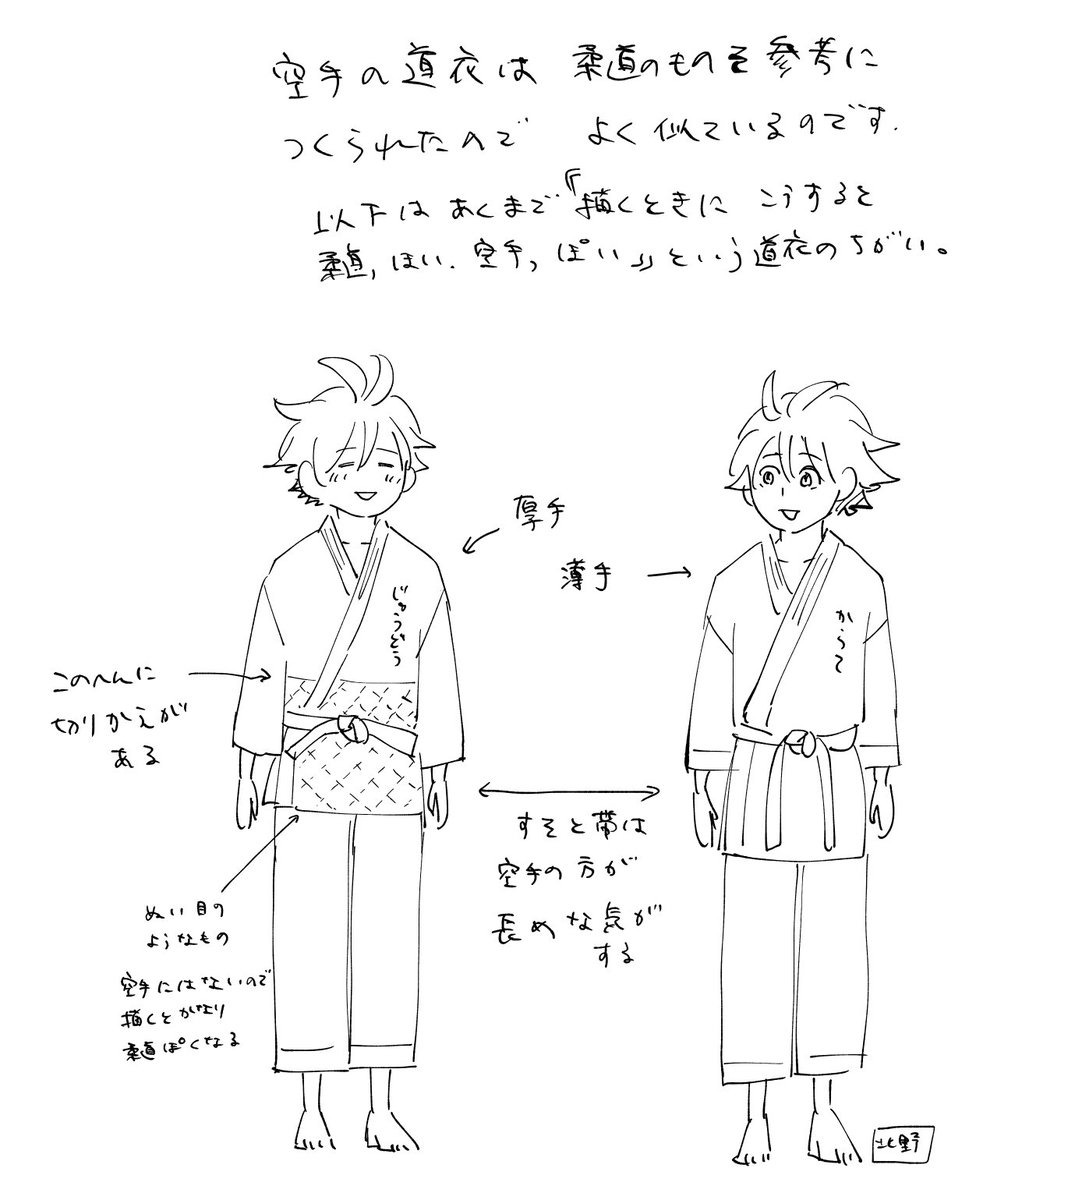 空手の道衣は 柔道のものを参考に
つくられたので よく似ているのです.
以下はあくまで『描くときに こうすると
柔道っぽい. 空手っぽい』という道衣のちがい。
厚手
薄手
じゅうどう
からて
このへんに
切りかえが
ある
すそと帯は
空手の方が
長めな気が
する
ぬい目の
ようなもの
空手にはないので
描くとかなり
柔道ぽくなる
北野